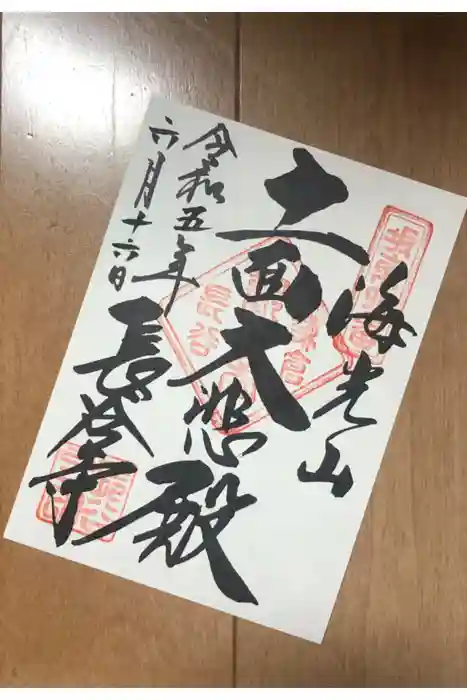 海光山
十一面大悲殿
長谷寺
令和五年
六月十六日